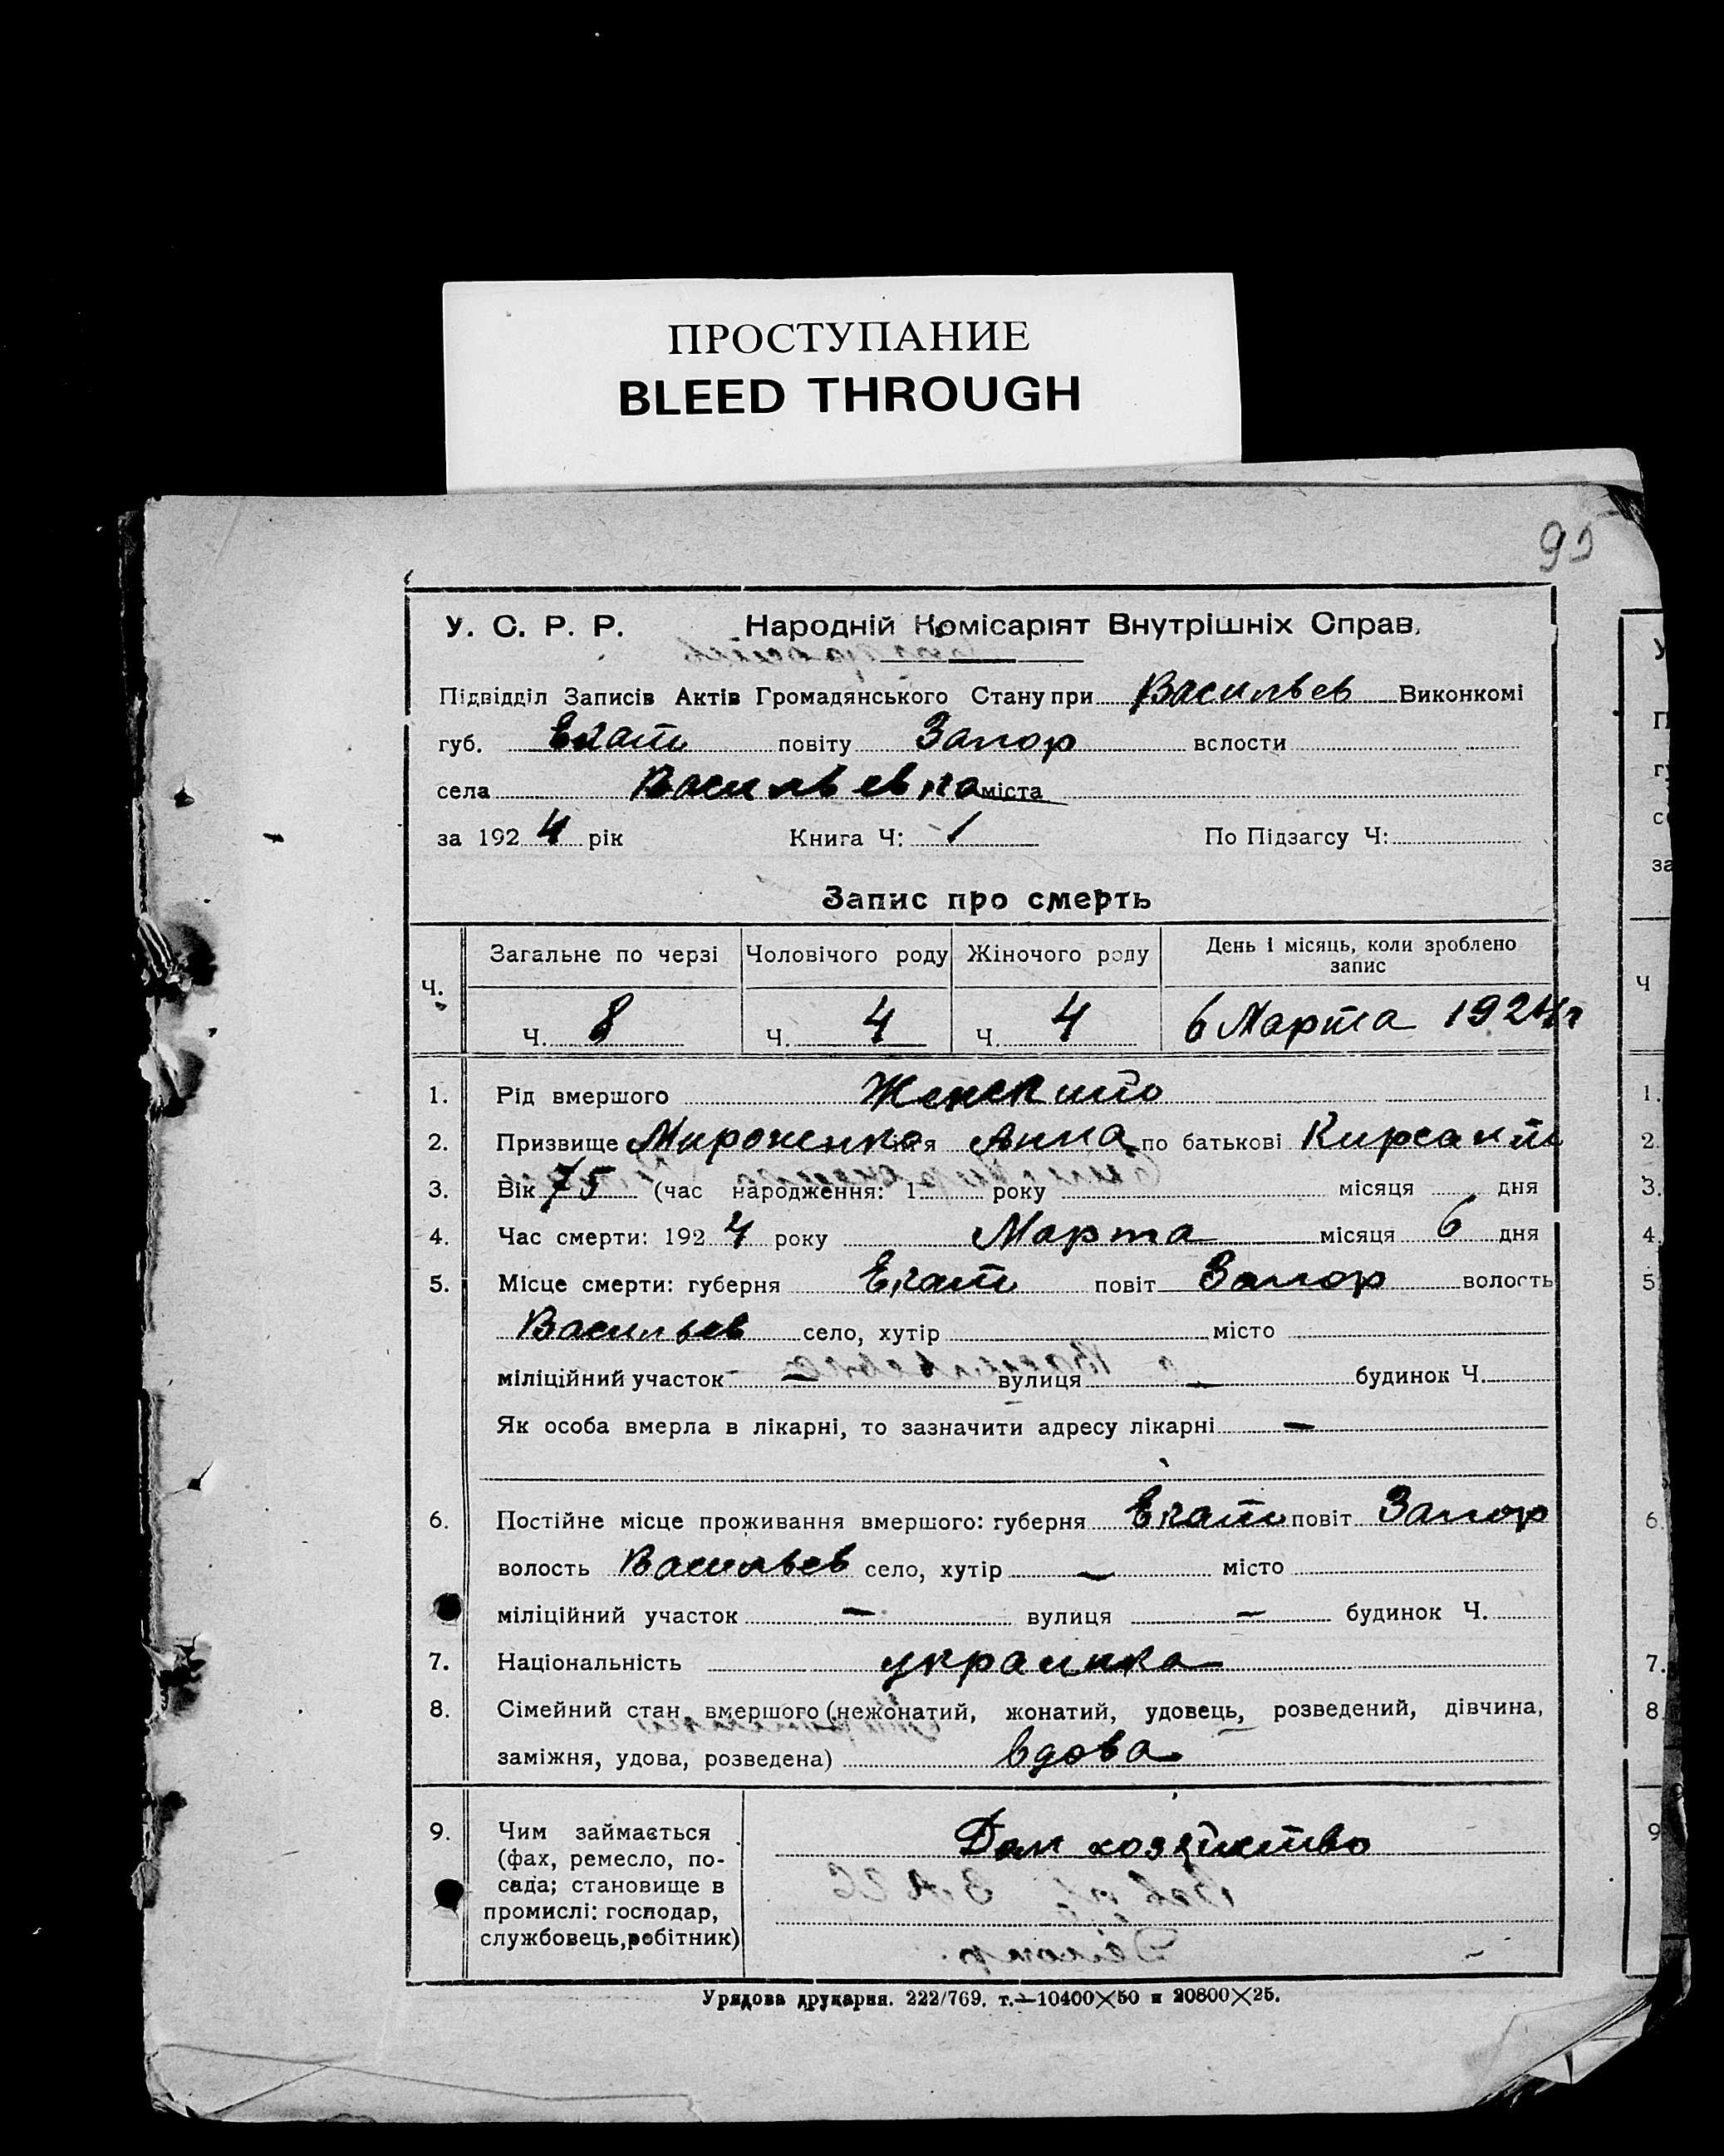 ПРОСТУПАНИЕ
BLEED THROUGH
У. С. Р. Р. Народній Комісаріят Внутрішніх Справ.
Підвідділ Записів Актів Громадянського Стану при Васильев Виконкомі
губ. Екат повіту Запор вслости
села Васильевка міста
за 1924 рік Книга Ч: 1 По Підзагсу Ч:
Запис про смерть
Ч. Загальне по черзі Чоловічого роду Жіночого роду День і місяць, коли зроблено запис
Ч. 8 Ч. 4 Ч. 4 6 Марта 1924 г
1. Рід вмершого Женского
2. Призвище Мироненко імя Анна по батькові
3. Вік 75 (час народження: 1 року місяця дня
4. Час смерти: 1924 року Марта місяця 6 дня
5. Місце смерти: губерня Екат повіт Запор волость
Васильев село, хутір місто
міліційний участок — вулиця — будинок Ч.
Як особа вмерла в лікарні, то зазначити адресу лікарні —
6. Постійне місце проживання вмершого: губерня Екат повіт Запор
волость Васильев село, хутір — місто
міліційний участок — вулиця — будинок Ч.
7. Національність украинка
8. Сімейний стан вмершого (нежонатий, жонатий, удовець, розведений, дівчина,
заміжня, удова, розведена) вдова
9. Чим займається
(фах, ремесло, по-
сада; становище в
промислі: господар,
службовець, робітник)
Дом хозяйство
Урядова друкарня. 222/769. т.—10400×50 и 20800×25.